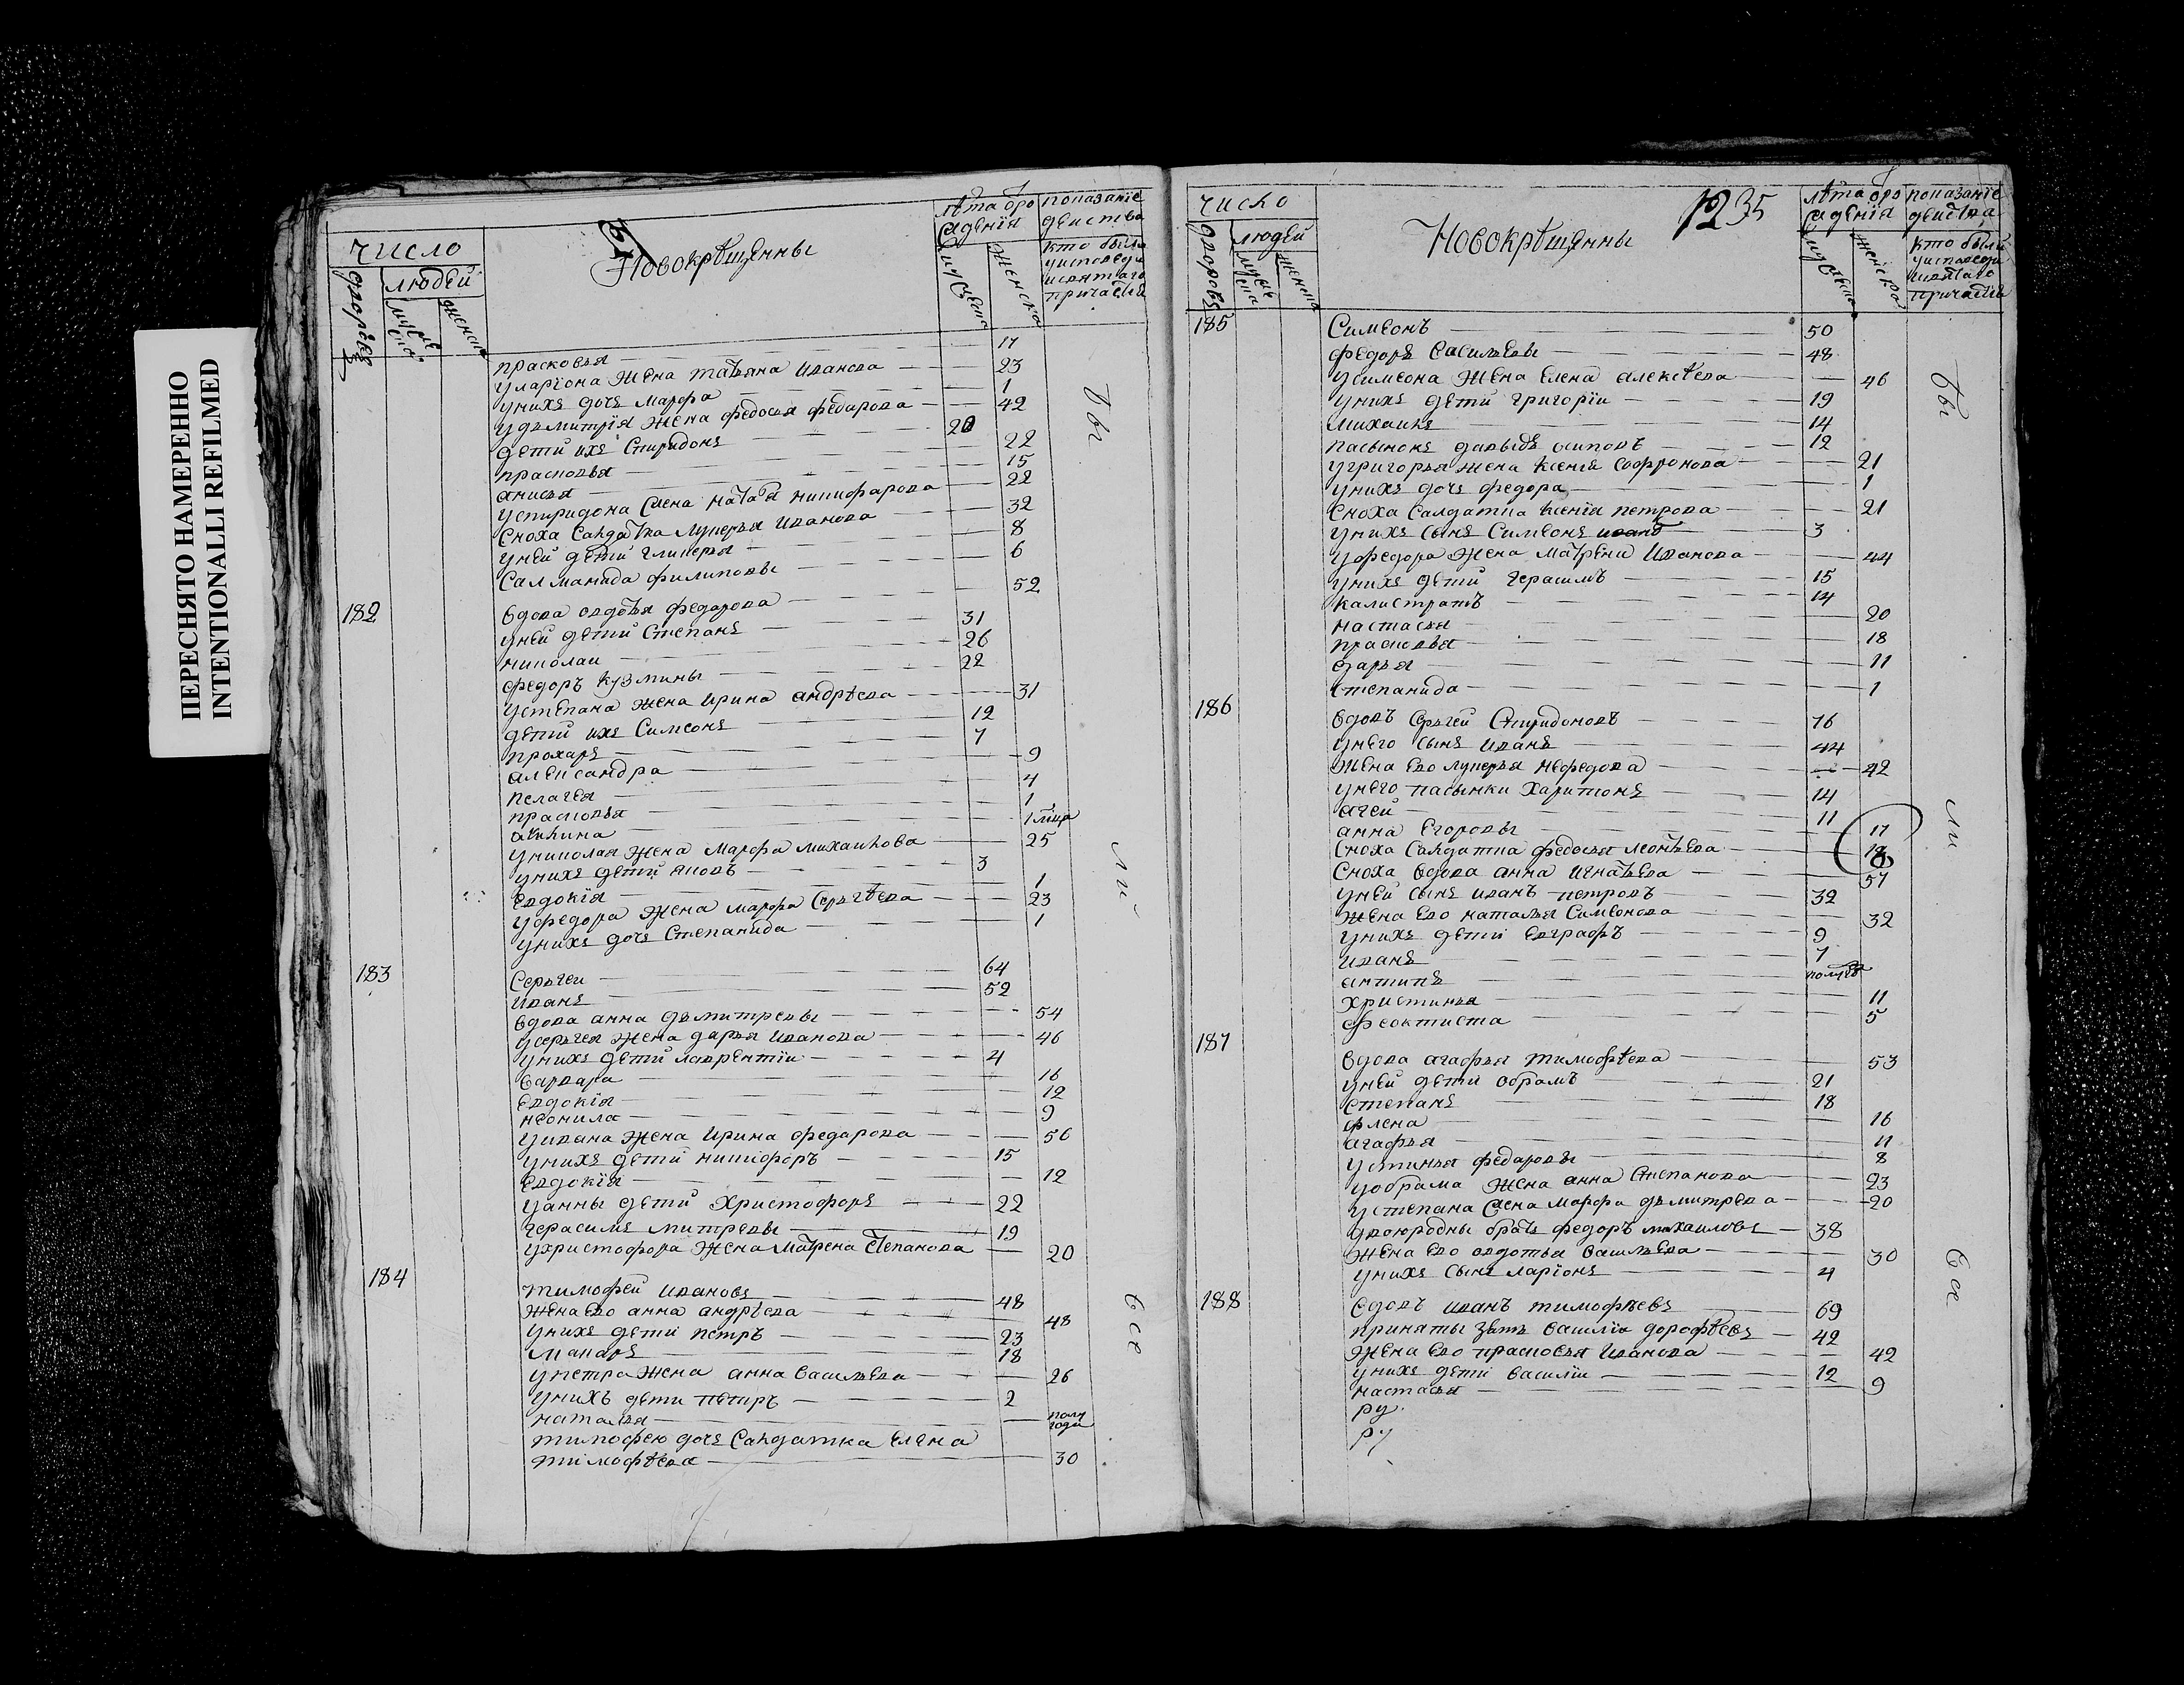 ПЕРЕСНЯТО НАМЕРЕННО
INTENTIONALLI REFILMED
число
людей
дворовъ
Новокрѣщенны
лѣта обро
жденїя
женска
показанїе
действа
кто были
уисповеди
исвятаго
причастїя
прасковья 17
уларїона жена татьяна иванова 23
унихъ дочь марфа 1
удьмитрїя жена федосья федарова 42
дети ихъ Спиридонъ 20
прасковья 22
анисья 15
успиридона жена наталя никифарова 22
сноха салдатка лукерья иванова 32
уней дети гликерья 8
Саламанида филиповы 6
182 вдова овдотья федарова 52
уней дети Степанъ 31
николаи 26
федоръ кузмины 22
устепана жена ирина андрѣева 31
дети ихъ Симеонъ 12
прохаръ 7
александра 9
пелагея 4
прасковья 1
акилина 1
униколая жена марфа михаилова 25
унихъ дети яковъ 3
евдокїя 1
уфедора жена марфа сергѣева 23
унихъ дочь Степанида 1
183 Сергеи 64
иванъ 52
вдова анна дьмитревы 54
усергея жена дарья иванова 46
унихъ дети лаврентїи 4
варвара 16
евдокїя 12
неонила 9
уивана жена ирина федарова 56
унихъ дети никифоръ 15
евдокїя 12
уанны дети христофоръ 22
герасимъ митревы 19
ухристофора жена матрена степанова 20
184 тимофей ивановъ 48
жена ево анна андрѣева 48
унихъ дети петръ 23
макаръ 18
упетра жена анна васильева 26
унихъ дети петръ 2
наталья полу
года
тимофею дочь салдатка елена
тимофѣева 30
бы
ли
все
число
людей
дворовъ
Новокрѣщенны
1235
лѣта обро
жденїя
женска
показанїе
действа
кто были
уисповеди
исвятаго
причастїя
185 Симеонъ 50
федоръ васильевы 48
усимеона жена елена алексѣева 46
унихъ дети григорїи 19
михаилъ 14
пасынокъ давыдъ осиповъ 12
угригорья жена ксенїя софронова 21
унихъ дочь федора 1
сноха салдатка ксенїя петрова 21
унихъ сынъ Симеонъ 3
уфедора жена матрена иванова 44
унихъ дети герасимъ 15
калистратъ 14
настасья 20
прасковья 18
дарья 11
степанида 1
186 вдовъ сергей Спиридоновъ 76
унего сынъ иванъ 44
жена ево лукерья нефедова 42
унего пасынки харитонъ 14
агей 11
анна егоровы 17
сноха салдатка федосья леонтьева
сноха вдова анна игнатьева 57
уней сынъ иванъ петровъ 32
жена ево наталья Симеонова 32
унихъ дети евграфъ 9
иванъ 7
антипъ
христинья 11
феоктиста 5
187 вдова агафья тимофѣева 53
уней дети обрамъ 21
степанъ 18
флена 16
агафья 11
устинья федаровы 8
уобрама жена анна Степанова 23
устепана жена марфа дьмитрева 20
двоюродны братъ федоръ михаиловъ 38
жена ево овдотья васильева 30
унихъ сынъ ларїонъ 4
188 вдовъ иванъ тимофѣевъ 69
приняты зять василїи дорофѣевъ 42
жена ево прасковья иванова 42
унихъ дети василїи 12
настасья 9
ру
ру
бы
ли
все